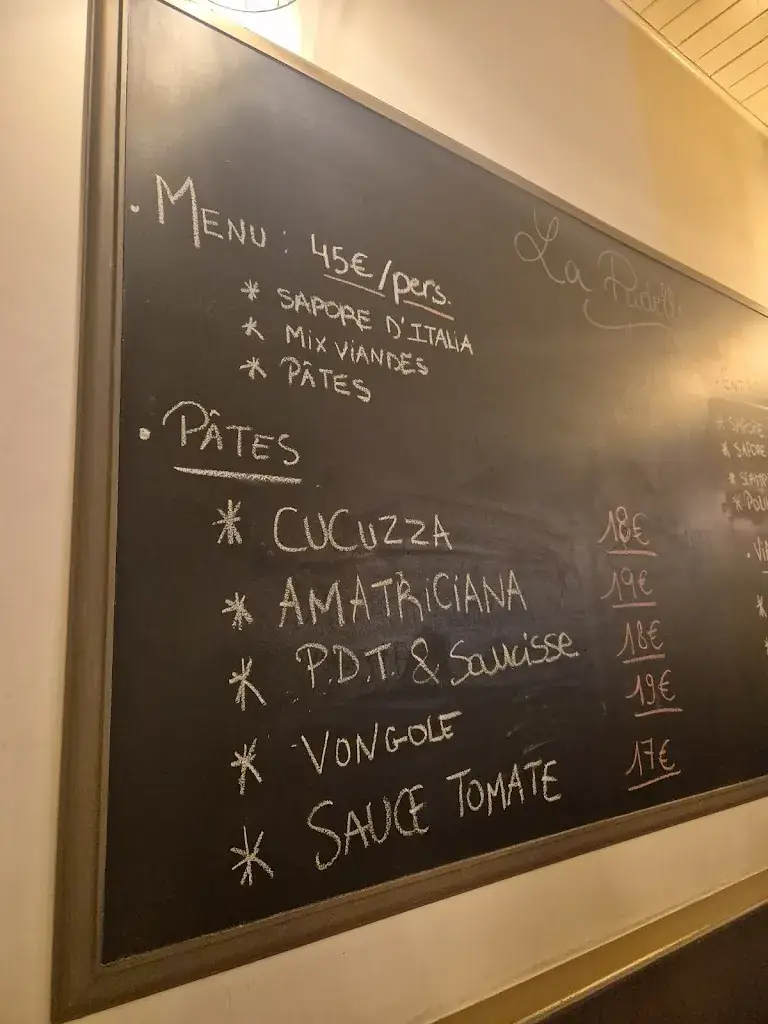 . MENU : 45€/pers.
* SAPORE D'ITALIA
* MIX VIANDES
* PÂTES
. PÂTES
* CUCUZZA 18€
* AMATRICIANA 19€
* P.D.T. & Saucisse 18€
* VONGOLE 19€
* SAUCE TOMATE 17€
La
* SAPORE
* SAPORE